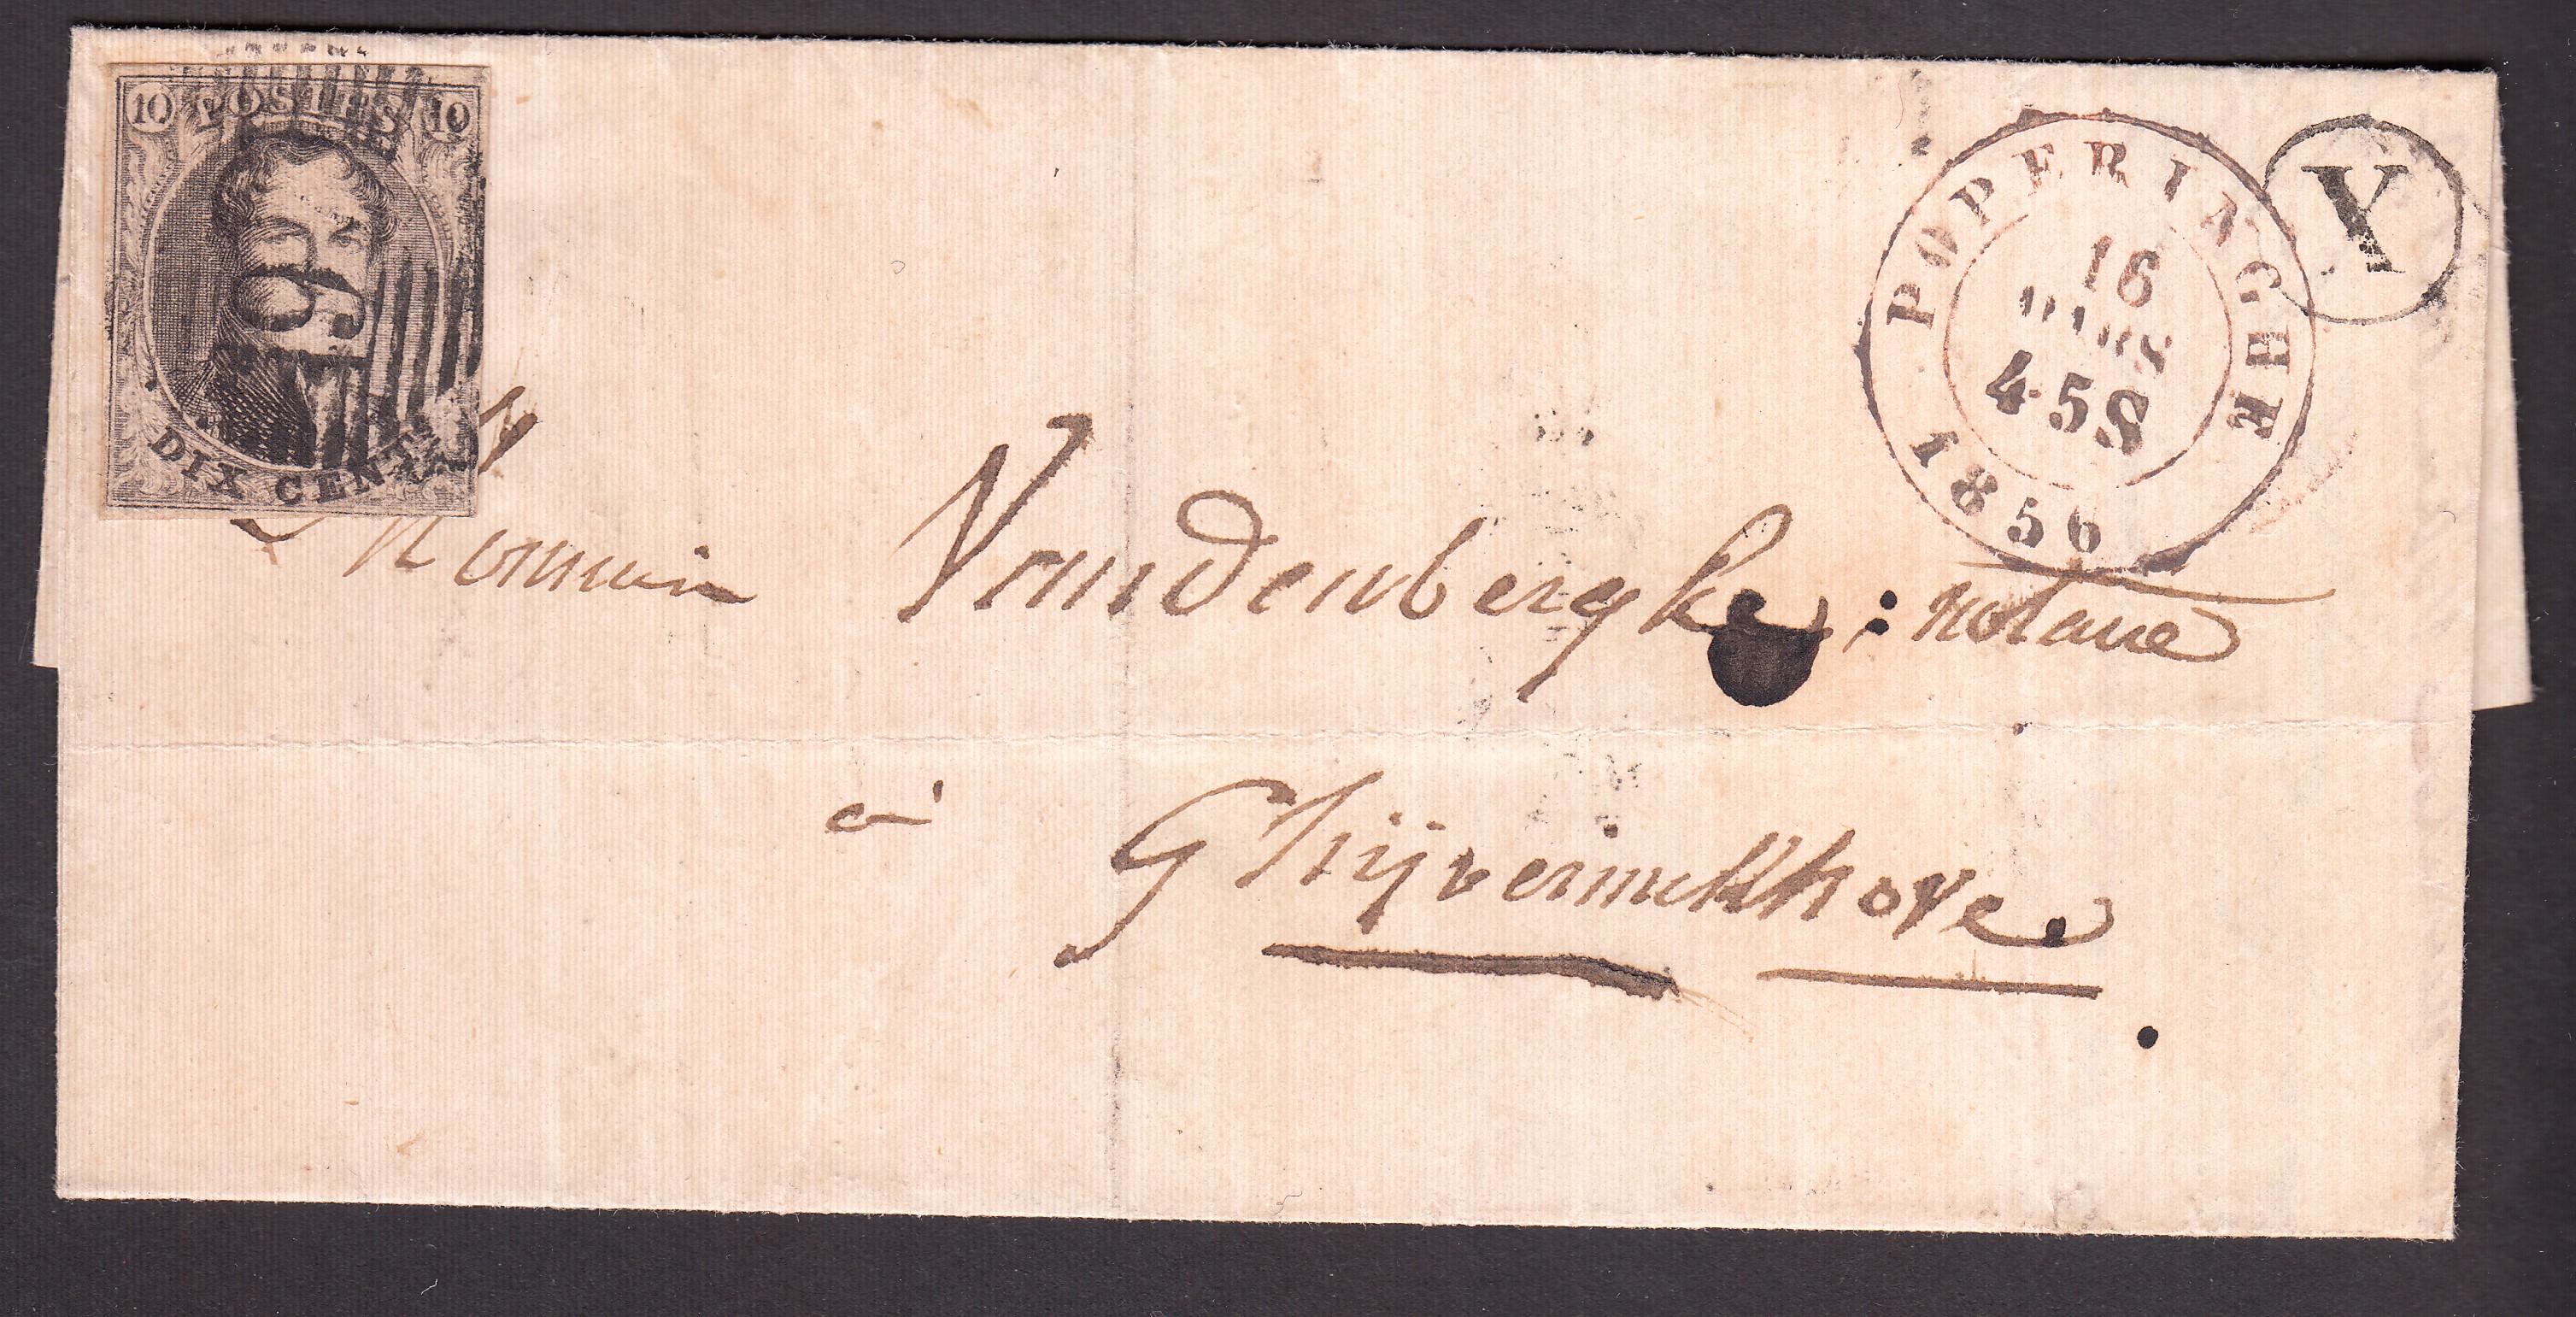 10 POSTES 10
DIX CENT
POPERINGHE
16
MARS
4·5S
1856
Y
Vandenberghe: notaire
à
Ghijverinckhove